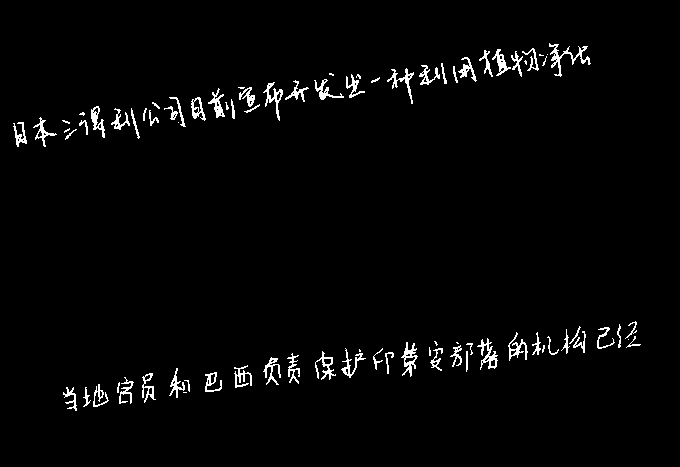 日本三得利公司日前宣布开发出一种利用植物净化
当地官员和巴西负责保护印第安部落的机构已经